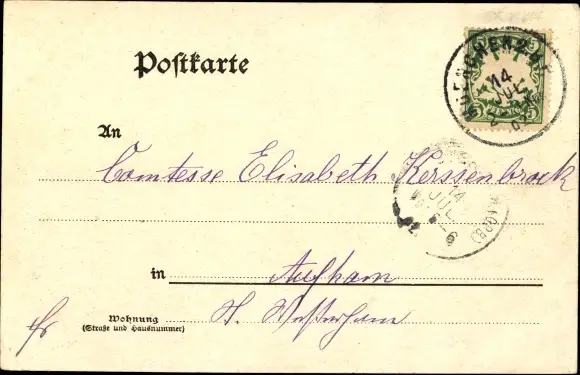 Postkarte
14
JUL
An
Comtesse Elisabeth Kerssenbrock
14
JUL
in Aufham
Wohnung
(Straße und Hausnummer)